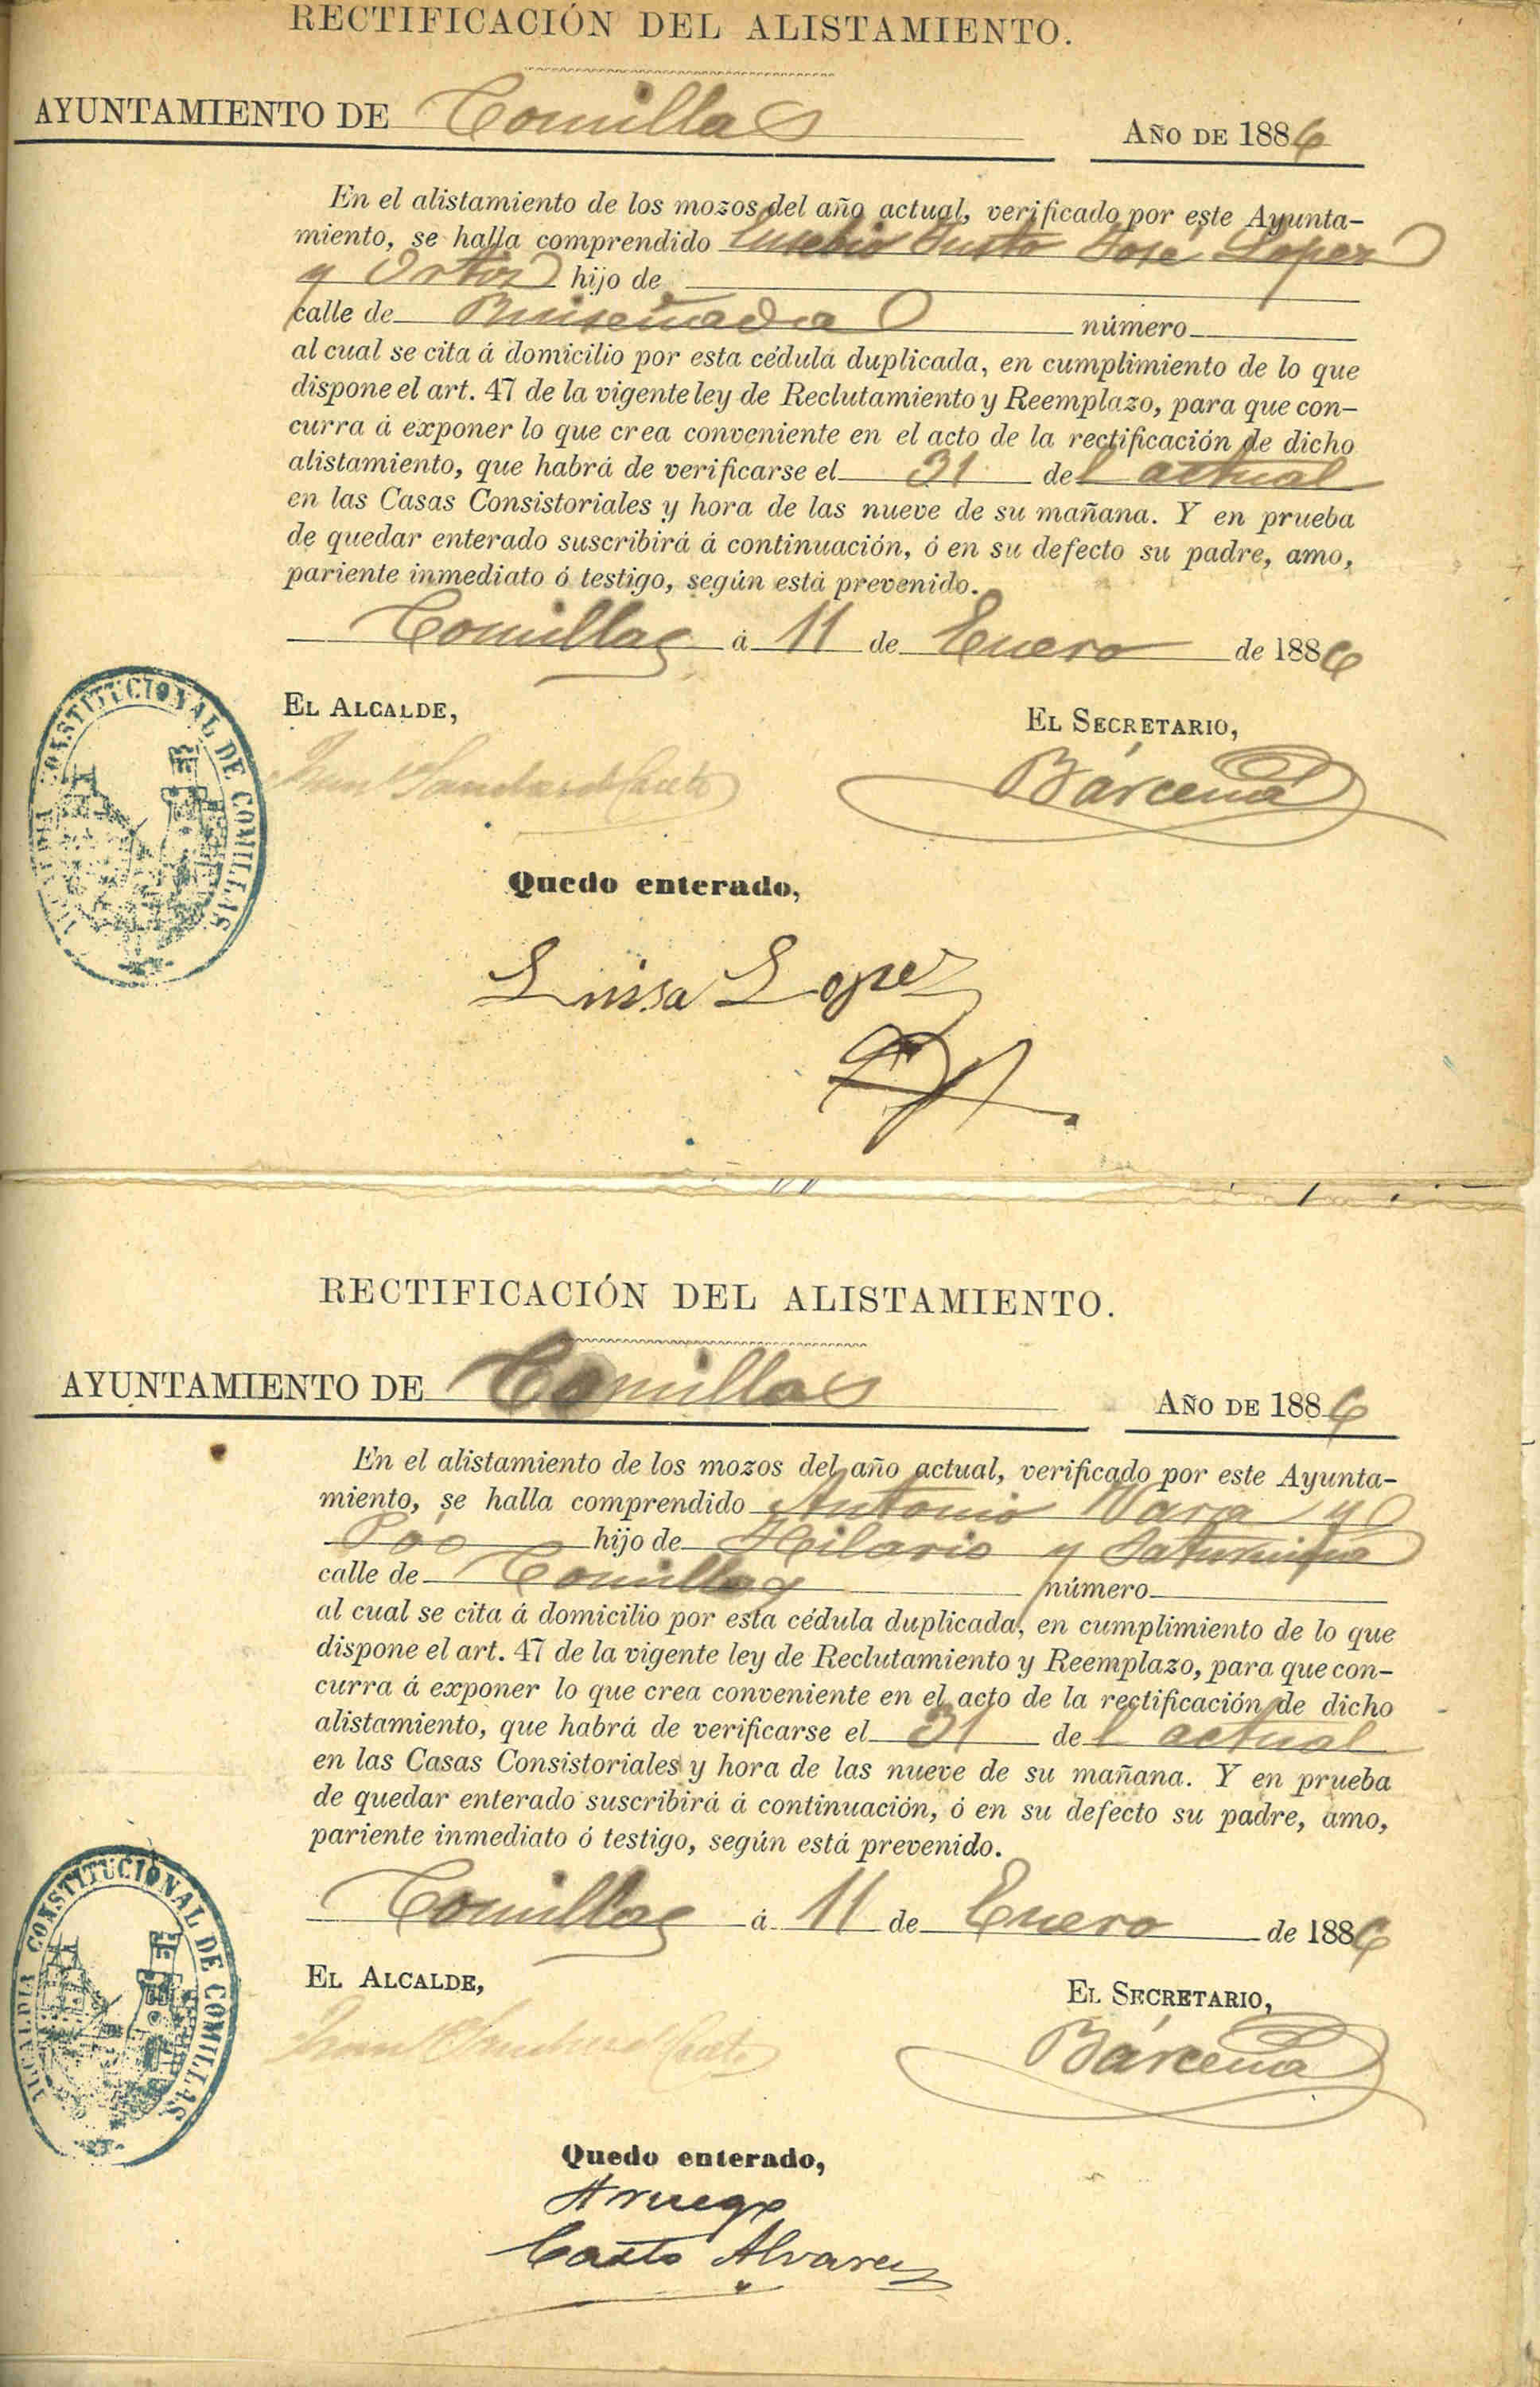 RECTIFICACIÓN DEL ALISTAMIENTO.
AYUNTAMIENTO DE Comillas AÑO DE 1886
En el alistamiento de los mozos del año actual, verificado por este Ayunta-
miento, se halla comprendido Eusebio Justo José Lopez
y Ortiz hijo de
calle de Ruiseñada número
al cual se cita á domicilio por esta cédula duplicada, en cumplimiento de lo que
dispone el art. 47 de la vigente ley de Reclutamiento y Reemplazo, para que con-
curra á exponer lo que crea conveniente en el acto de la rectificación de dicho
alistamiento, que habrá de verificarse el 31 del actual
en las Casas Consistoriales y hora de las nueve de su mañana. Y en prueba
de quedar enterado suscribirá á continuación, ó en su defecto su padre, amo,
pariente inmediato ó testigo, según está prevenido.
Comillas á 11 de Enero de 1886
EL ALCALDE,
EL SECRETARIO,
Bárcena
ALCALDIA CONSTITUCIONAL DE COMILLAS
Quedo enterado,
Luisa Lopez
RECTIFICACIÓN DEL ALISTAMIENTO.
AYUNTAMIENTO DE Comillas AÑO DE 1886
En el alistamiento de los mozos del año actual, verificado por este Ayunta-
miento, se halla comprendido Antonio Vara y
Poo hijo de Hilario y Saturnina
calle de Comillas número
al cual se cita á domicilio por esta cédula duplicada, en cumplimiento de lo que
dispone el art. 47 de la vigente ley de Reclutamiento y Reemplazo, para que con-
curra á exponer lo que crea conveniente en el acto de la rectificación de dicho
alistamiento, que habrá de verificarse el 31 del actual
en las Casas Consistoriales y hora de las nueve de su mañana. Y en prueba
de quedar enterado suscribirá á continuación, ó en su defecto su padre, amo,
pariente inmediato ó testigo, según está prevenido.
Comillas á 11 de Enero de 1886
EL ALCALDE,
EL SECRETARIO,
Bárcena
ALCALDIA CONSTITUCIONAL DE COMILLAS
Quedo enterado,
Aruego
Casto Alvarez